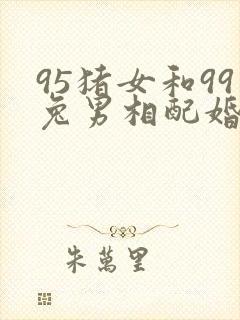 95猪女和99
兔男相配婚
朱萬里